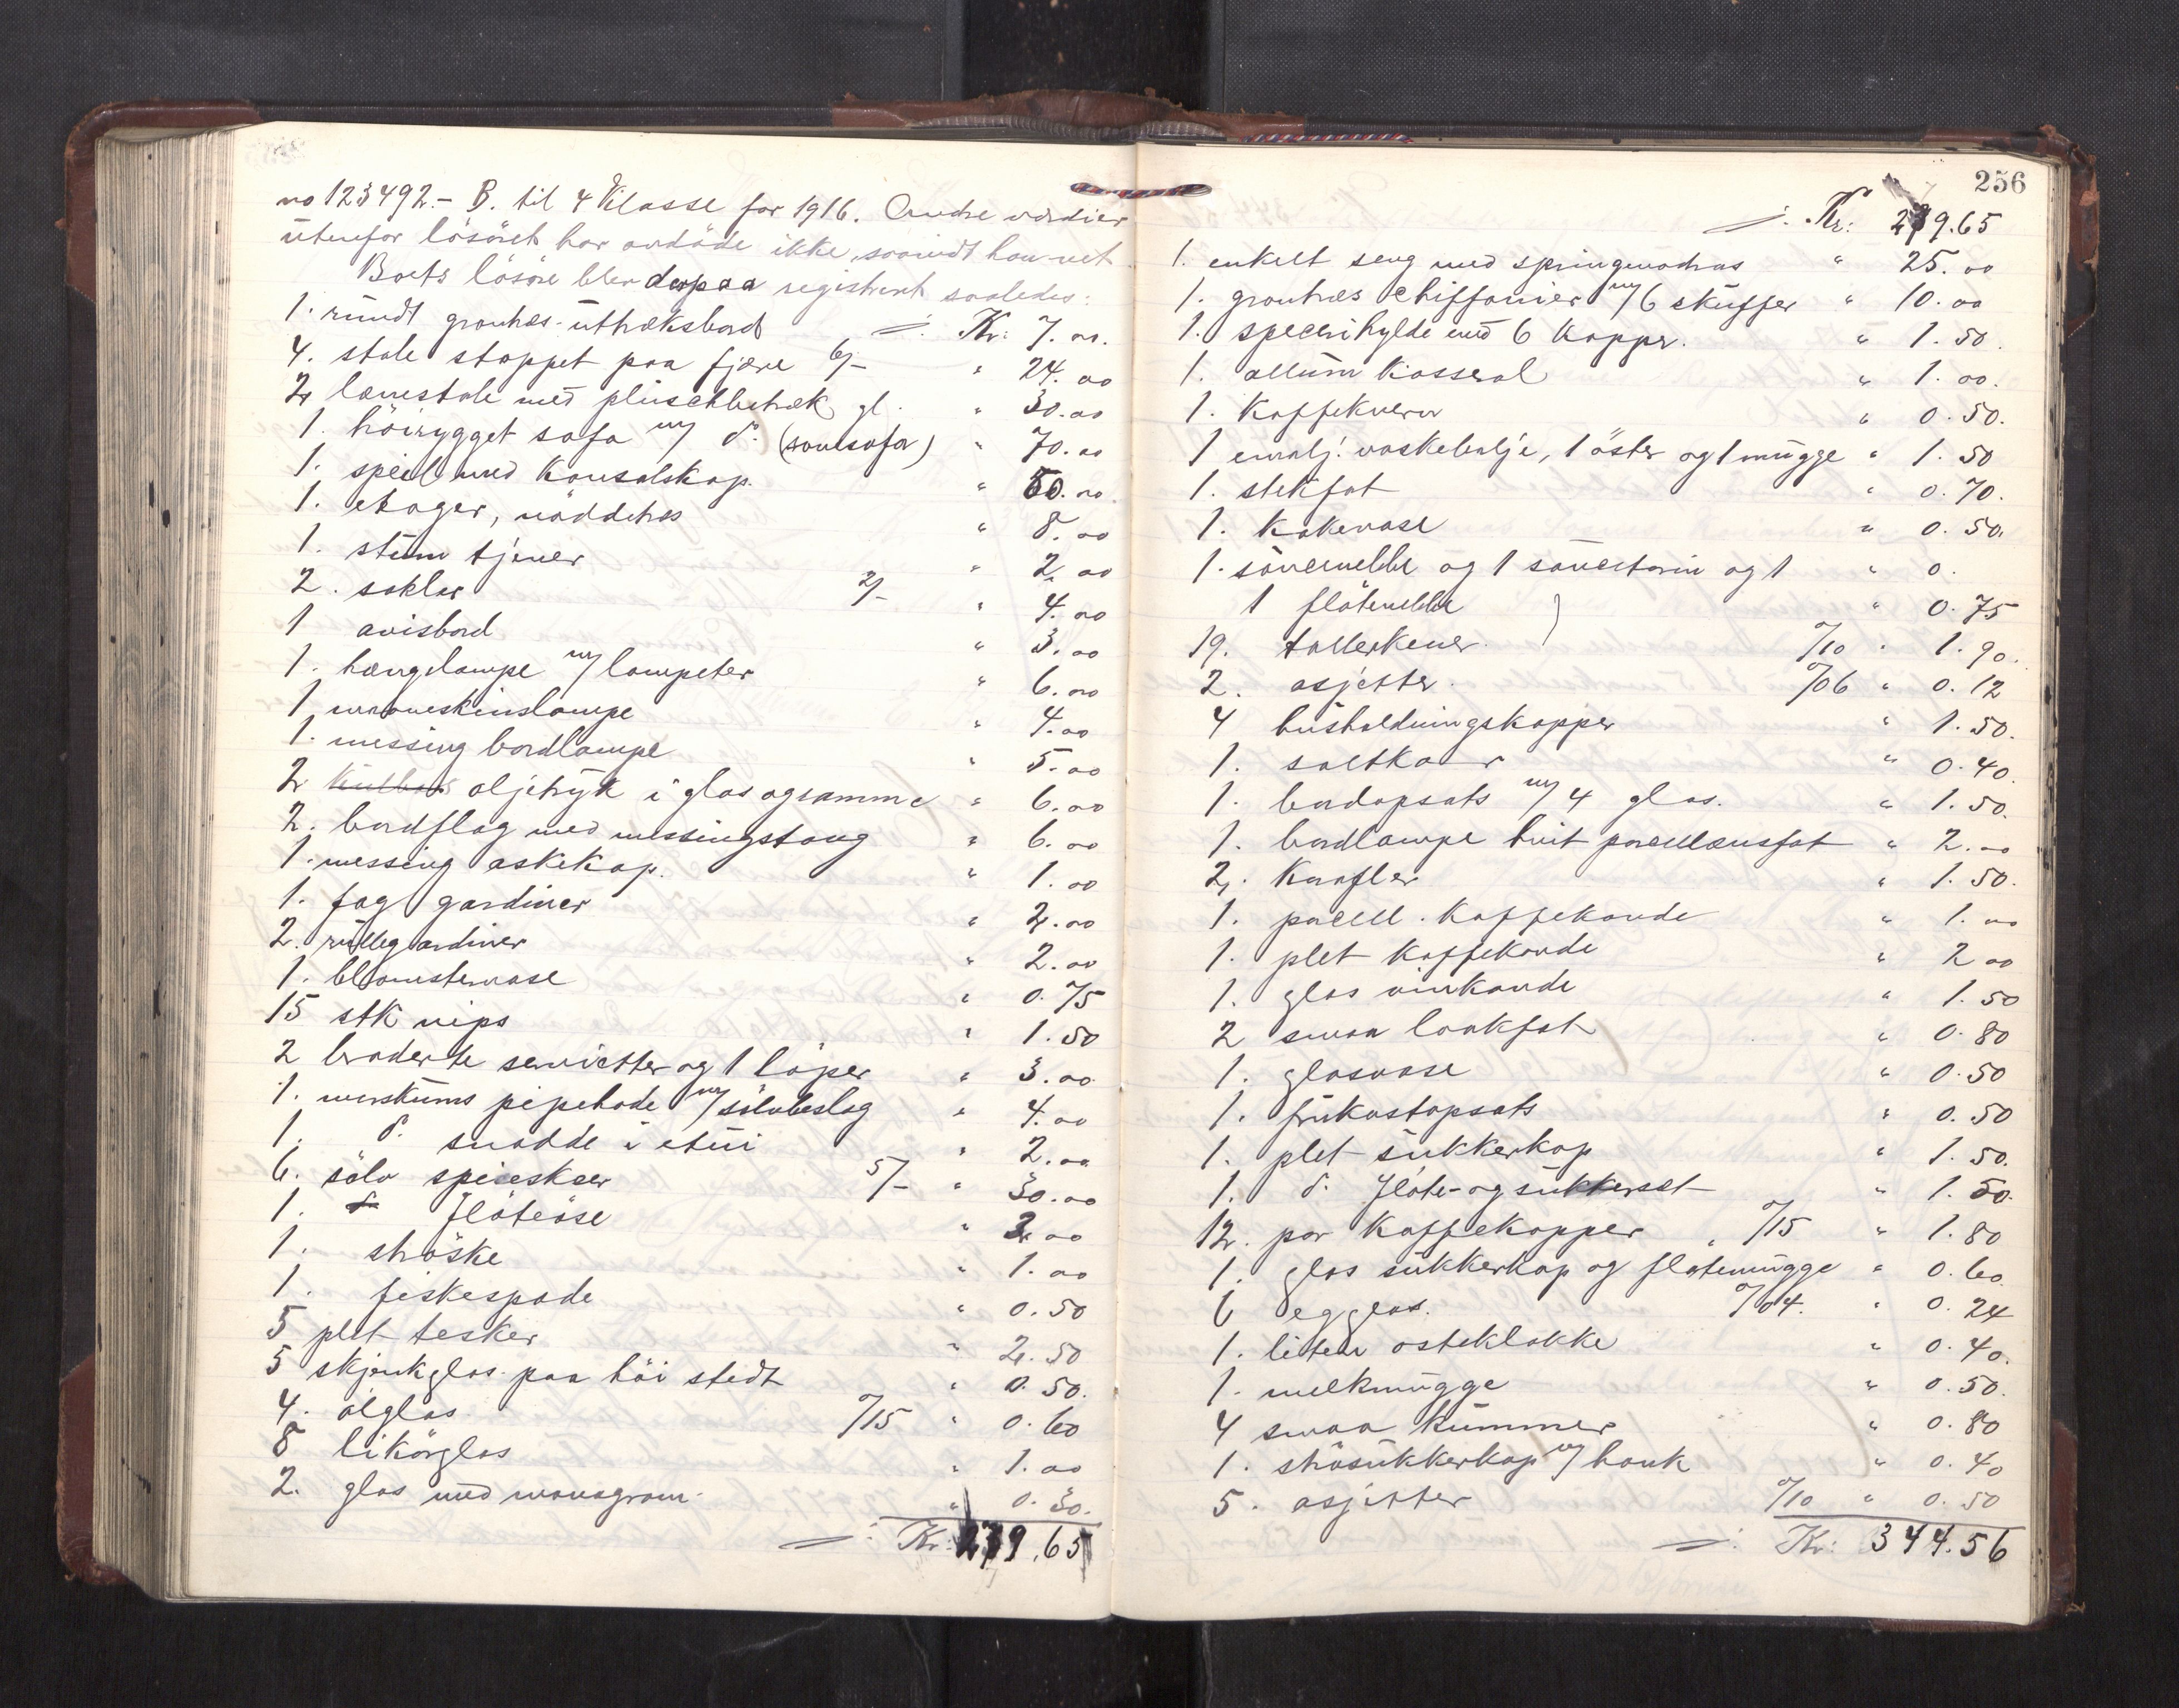 no 123492.- B. til 4 Klasse for 1916. Andre værdier
utenfor lösöret har avdöde ikke, saavidt han vet.
Boets lösöre blev derpaa registrert saaledes:
1. rundt grantræs-uttræksbord Kr: 7.00.
4. stole stoppet paa fjære 6/- " 24.00
2 lænestole med plüschbetræk gl. " 30.00
1. höirygget sofa m/ do. (sovesofa) " 70.00
1. speil med Konsolskap. " 50.00
1. etager, nöddetræs " 8.00
1. stum tjener " 2.00
2. sokler 2/- " 4.00
1 avisbord " 3.00
1. hængelampe m/ lampeter " 6.00
1 maaneskinslampe " 4.00
1. messing bordlampe " 5.00
2 oljetryk i glas og ramme " 6.00
2. bordflag med messingstang " 6.00
1. messing askekop. " 1.00
1. fag gardiner " 2.00
2. rullegardiner " 2.00
1. blomstervase " 0.75
15 stk nips " 1.50
2 broderte servietter og 1 löper " 3.00
1. merskums pipehode m/ sölvbeslag " 4.00
1. do. snadde i etui " 2.00
6. sölv spiseskeer 5/- " 30.00
1. flöteöse " 2.00
1. ströske " 1.00
1. fiskespade " 0.50
5 plet tesker " 2.50
5 skjenkglas paa höi stedt " 0.50.
4. ölglas 0/15 " 0.60
8 likörglas " 1.00
2. glas med monogram " 0.30.
Kr: 279.65
256
Kr: 279.65
1. enkelt seng med springmadras " 25.00
1. grantræs chiffonier m/ 6 skuffer " 10.00
1. specerihylde med 6 Kopper. " 1.50.
1. allum Kasserol " 1.00.
1. Kaffekvern " 0.50.
1 emalj. vaskebalje, 1 öster og 1 mugge " 1.50
1. stekfat " 0.70.
1. Kakevase " 0.50.
1. sauenebbe og 1 sauceterin og 1 " 0.
1 flötenebbe " 0.75
19. tallerkener. 0/10 " 1.90.
2. asjetter. 0/06 " 0.12
4 husholdningskopper " 1.50.
1. saltkar " 0.40.
1. bordopsats m/ 4 glas. " 1.50.
1. bordlampe hvit porcellænsfat " 2.00
2. Knafler " 1.50.
1. porcell. Kaffekande " 1.00
1. plet Kaffekande " 2 00
1. glas vinkande " 1.50
2 smaa laakfat " 0.80
1. glasvase " 0.50
1. frukostopsats " 0.50
1. plet sukkerkop " 1.50.
1. do. flöte- og sukkerset " 1.50.
12. par Kaffekopper 0/15 " 1.80
1. glas sukkerkop og flötemugge " 0.60
6 egglas. 0/04. " 0.24
1. liten osteklokke " 0.40.
1. melkmugge " 0.50.
4 smaa Kummer " 0.80
1. strösukkerkop m/ hank " 0.40
5. asjetter 0/10 " 0.50
Kr: 344.56